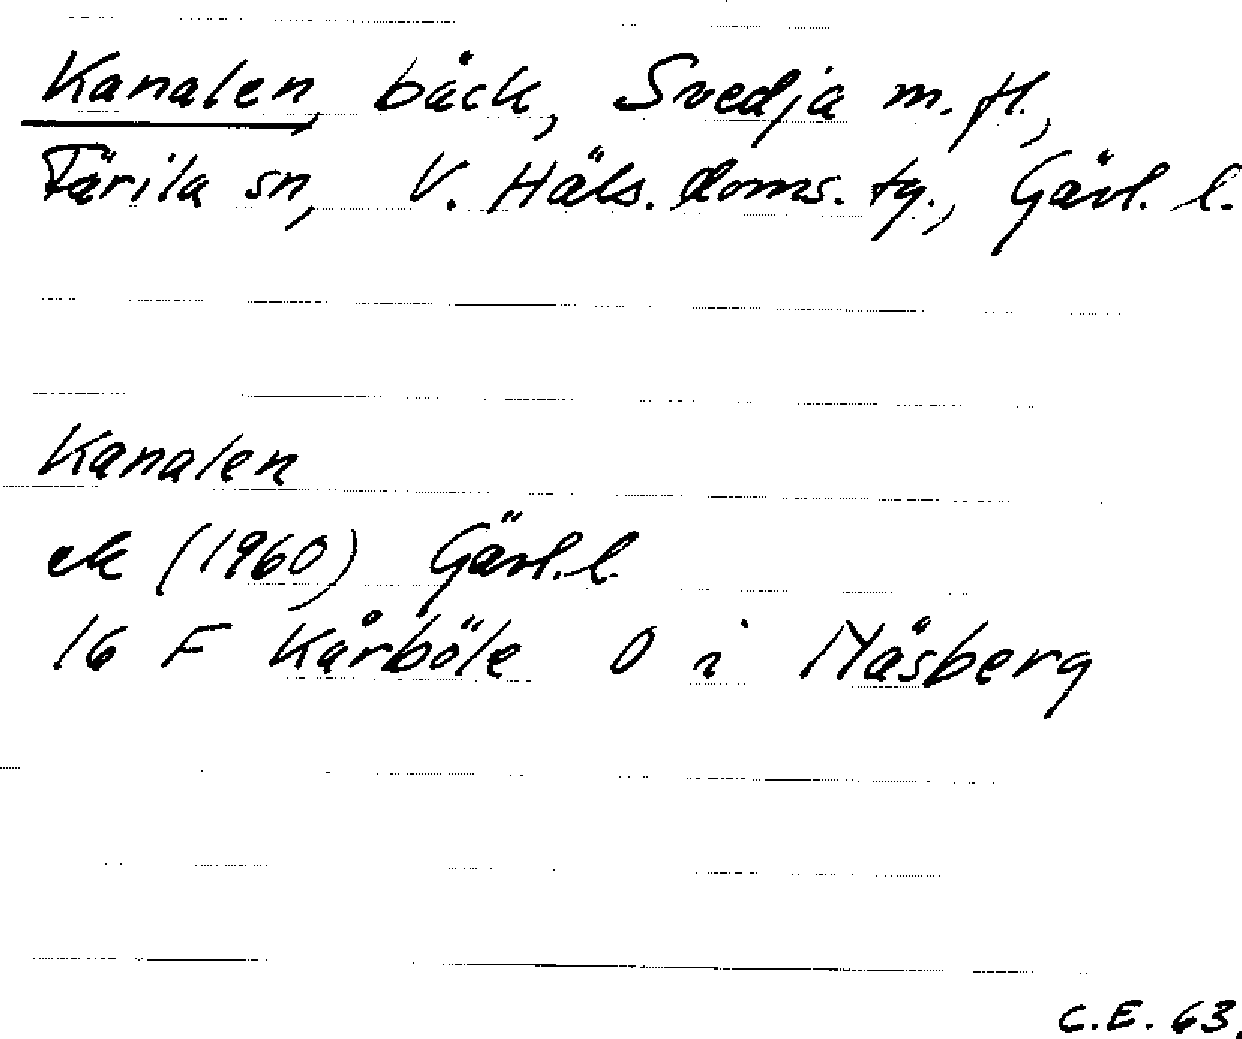 Kanalen, bäck, Svedja m.fl.,
Färila sn, V. Häls. doms. tg., Gävl. l.
Kanalen
ek (1960) Gävl.l.
16 F Kårböle O i Måsberg
C.E. 63.